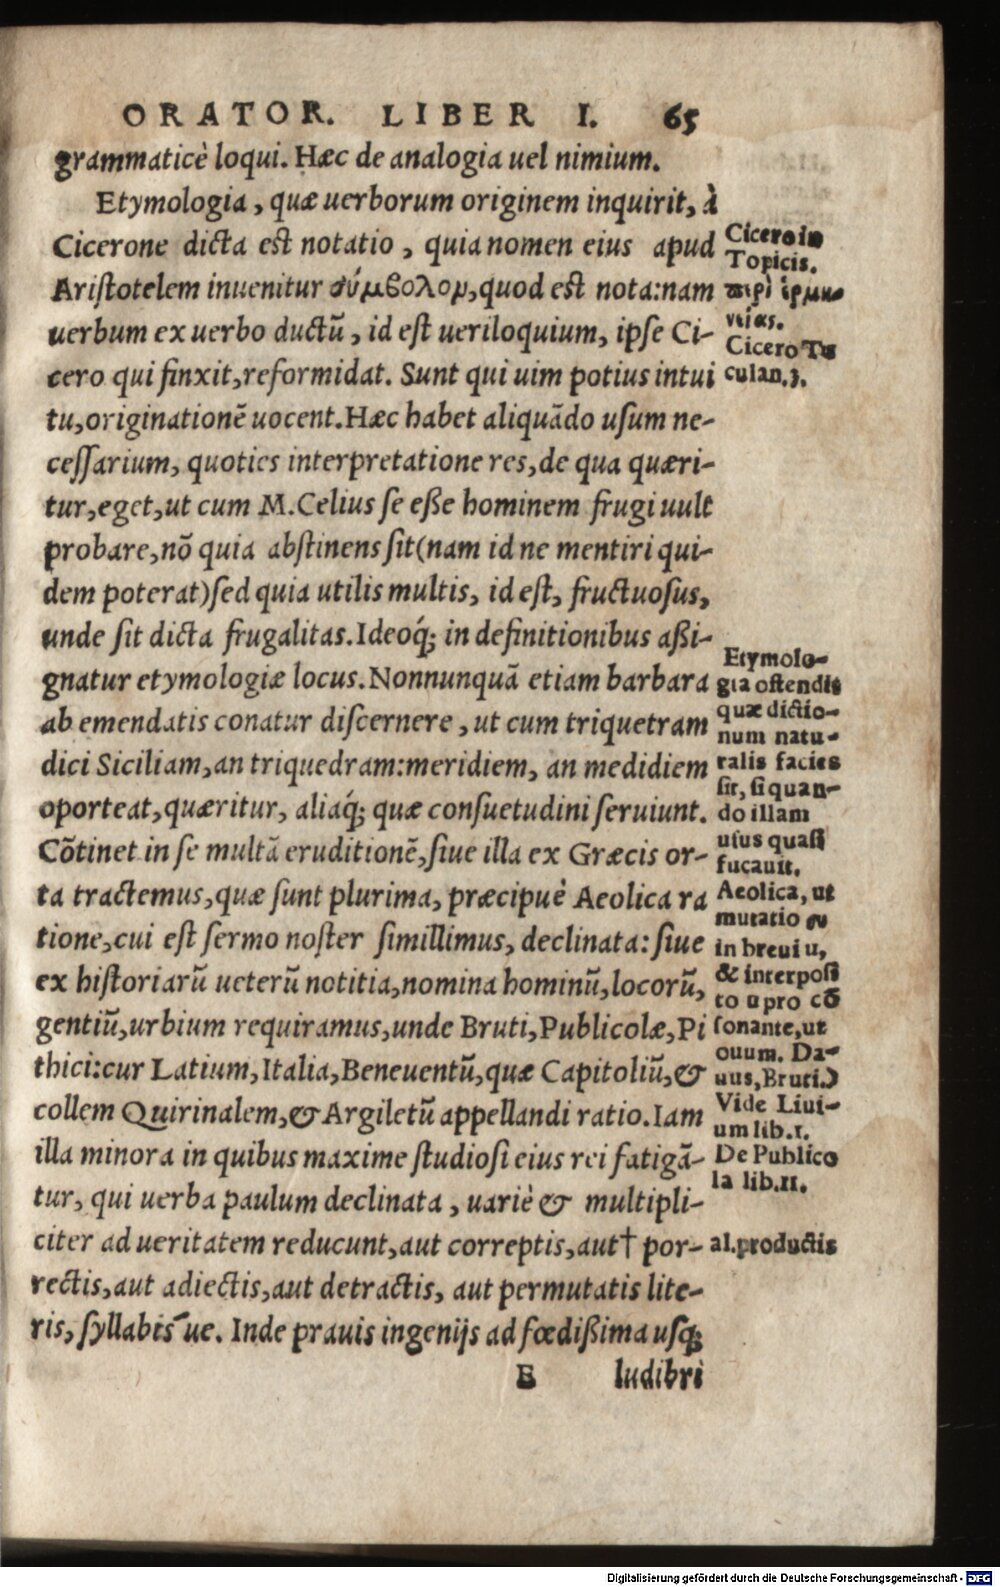 ORATOR. LIBER I. 65
grammaticè loqui. Hæc de analogia uel nimium.
Etymologia, quæ uerborum originem inquirit, à
Cicerone dicta est notatio, quia nomen eius apud
Aristotelem inuenitur σύμβολον, quod est nota: nam
uerbum ex uerbo ductū, id est ueriloquium, ipse Ci-
cero qui finxit, reformidat. Sunt qui uim potius intui
tu, originationē uocent. Hæc habet aliquādo usum ne-
cessarium, quoties interpretatione res, de qua quæri-
tur, eget, ut cum M. Celius se esse hominem frugi uult
probare, nō quia abstinens sit (nam id ne mentiri qui-
dem poterat) sed quia utilis multis, id est, fructuosus,
unde sit dicta frugalitas. Ideoq́; in definitionibus assi-
gnatur etymologiæ locus. Nonnunquā etiam barbara
ab emendatis conatur discernere, ut cum triquetram
dici Siciliam, an triquedram: meridiem, an medidiem
oporteat, quæritur, aliaq́; quæ consuetudini seruiunt.
Cōtinet in se multā eruditionē, siue illa ex Græcis or-
ta tractemus, quæ sunt plurima, præcipuè Aeolica ra
tione, cui est sermo noster simillimus, declinata: siue
ex historiarū ueterū notitia, nomina hominū, locorū,
gentiū, urbium requiramus, unde Bruti, Publicolæ, Pi
thici: cur Latium, Italia, Beneuentū, quæ Capitoliū, &
collem Quirinalem, & Argiletū appellandi ratio. Iam
illa minora in quibus maxime studiosi eius rei fatigā-
tur, qui uerba paulum declinata, uariè & multipli-
citer ad ueritatem reducunt, aut correptis, aut † por-
rectis, aut adiectis, aut detractis, aut permutatis lite-
ris, syllabis´ue. Inde prauis ingenijs ad fœdissima usq;
E ludibri
Cicero in
Topicis.
περὶ ἑρμη-
νείας.
Cicero Tu
culan. 3.
Etymolo-
gia ostendit
quæ dictio-
num natu-
ralis facies
sit, si quan-
do illam
usus quasi
fucauit.
Aeolica, ut
mutatio ου
in breui u,
& interposi
to u pro cō
sonante, ut
ouum. Da-
uus, Bruti.)
Vide Liui-
um lib. 1.
De Publico
la lib. 11.
al. productis
Digitalisierung gefördert durch die Deutsche Forschungsgemeinschaft - DFG